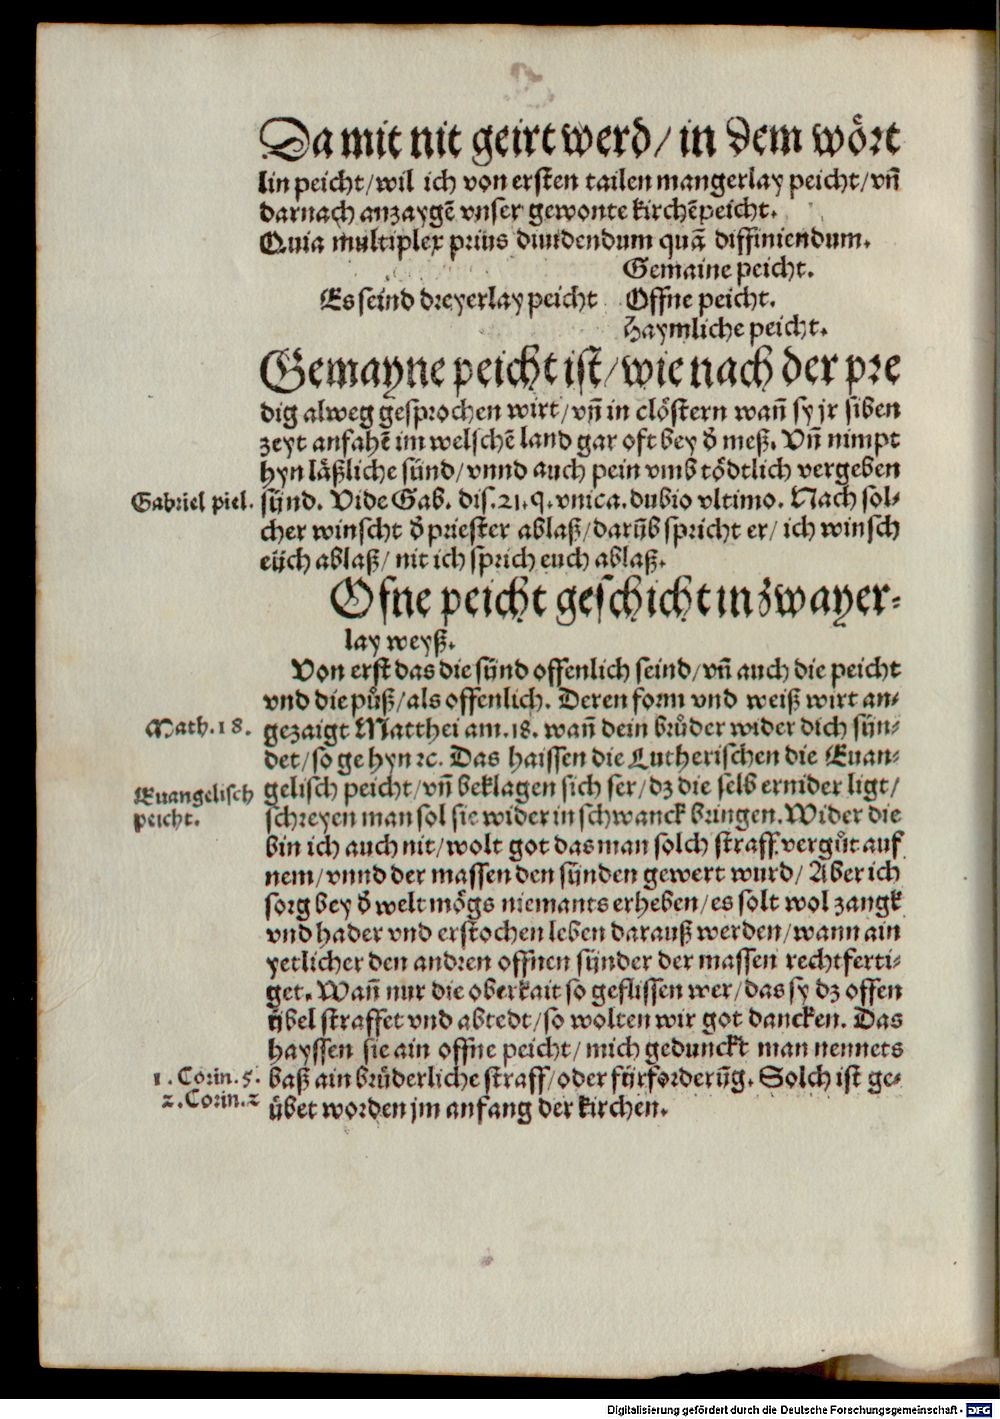 Da mit nit geirt werd/ in dem wört
lin peicht/ wil ich von ersten tailen mangerlay peicht/ vñ
darnach anzaygẽ vnser gewonte kirchẽpeicht.
Quia multiplex prius diuidendum quã diffiniendum.
Gemaine peicht.
Es seind dreyerlay peicht Offne peicht.
Haymliche peicht.
Gemayne peicht ist/ wie nach der pre
dig alweg gesprochen wirt/ vñ in clöstern wañ sy jr siben
zeyt anfahẽ im welschẽ land gar oft bey d̓ meß. Vñ nimpt
hyn läßliche sünd/ vnnd auch pein vmb tödtlich vergeben
Gabriel piel. sünd. Vide Gab. dis. 21. q. vnica. dubio vltimo. Nach sol-
cher winscht d̓ priester ablaß/ darüb spricht er/ ich winsch
eüch ablaß/ nit ich sprich euch ablaß.
Ofne peicht geschicht in zwayer-
lay weyß.
Von erst das die sünd offenlich seind/ vñ auch die peicht
vnd die půß/ als offenlich. Deren form vnd weiß wirt an-
Math. 18. gezaigt Matthei am. 18. wañ dein brůder wider dich sün-
det/ so ge hyn ꝛc. Das haissen die Lutherischen die Euan-
Euangelisch gelisch peicht/ vñ beklagen sich ser/ dz die selb ernider ligt/
peicht. schreyen man sol sie wider in schwanck bringen. Wider die
bin ich auch nit/ wolt got das man solch straff vergůt auf
nem/ vnnd der massen den sünden gewert wurd/ Aber ich
sorg bey d̓ welt mögs niemants erheben/ es solt wol zangk
vnd hader vnd erstochen leben darauß werden/ wann ain
yetlicher den andren offnen sünder der massen rechtferti-
get. Wañ nur die oberkait so geflissen wer/ das sy dz offen
übel straffet vnd abtedt/ so wolten wir got dancken. Das
hayssen sie ain offne peicht/ mich gedunckt man nennets
1. Corin. 5. baß ain brüderliche straff/ oder fürforderüg. Solch ist ge-
2. Corin. 2 übet worden jm anfang der kirchen.
Digitalisierung gefördert durch die Deutsche Forschungsgemeinschaft - DFG